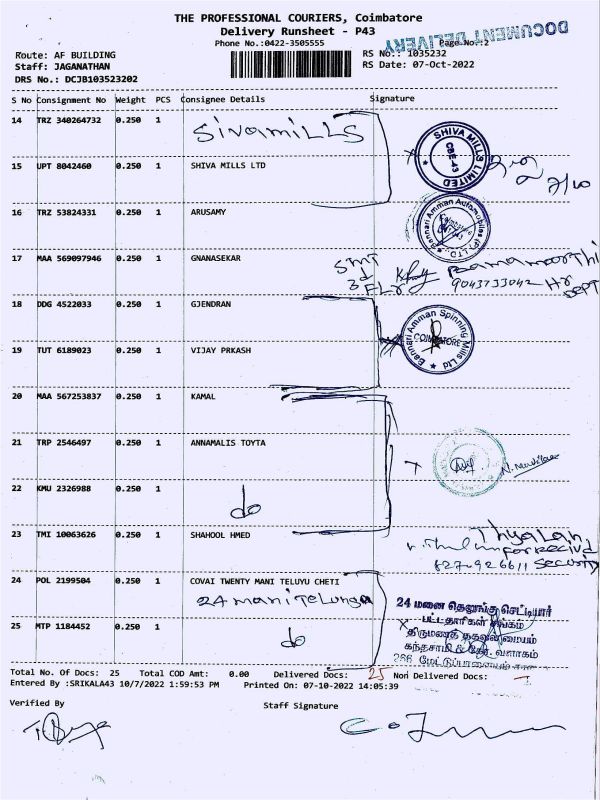 THE PROFESSIONAL COURIERS, Coimbatore
Delivery Runsheet - P43
DOCUMENT DELIVERY
Phone No.:0422-3505555
Page No.:2
Route: AF BUILDING
RS No.: 1035232
Staff: JAGANATHAN
RS Date: 07-Oct-2022
DRS No.: DCJB103523202
S No Consignment No Weight PCS Consignee Details Signature
14 TRZ 340264732 0.250 1 Siva MILLS
SHIVA MILLS LIMITED
CBE-43
15 UPT 8042460 0.250 1 SHIVA MILLS LTD
7/10
16 TRZ 53824331 0.250 1 ARUSAMY
Bannari Amman Automobiles (P) LTD.
17 MAA 569097946 0.250 1 GNANASEKAR
SMT
3rd FLr
Ramamoorthi
9043733042 Hr
DEPT
18 DDG 4522033 0.250 1 GJENDRAN
Bannari Amman Spinning Mills Ltd
COIMBATORE
19 TUT 6189023 0.250 1 VIJAY PRKASH
20 MAA 567253837 0.250 1 KAMAL
21 TRP 2546497 0.250 1 ANNAMALIS TOYTA
22 KMU 2326988 0.250 1 do
23 TMI 10063626 0.250 1 SHAHOOL HMED
Security
24 POL 2199504 0.250 1 COVAI TWENTY MANI TELUYU CHETI
24 mani Telunga
24 மனை தெலுங்கு செட்டியார்
பட்டதாரிகள் சங்கம்
25 MTP 1184452 0.250 1 do
திருமணத் தகவல்மையம்
கந்தசாமி & கோ. வளாகம்
266 மேட்டுப்பாளையம்
Total No. Of Docs: 25 Total COD Amt: 0.00 Delivered Docs: 25 Non Delivered Docs: -
Entered By :SRIKALA43 10/7/2022 1:59:53 PM Printed On: 07-10-2022 14:05:39
Verified By
Staff Signature